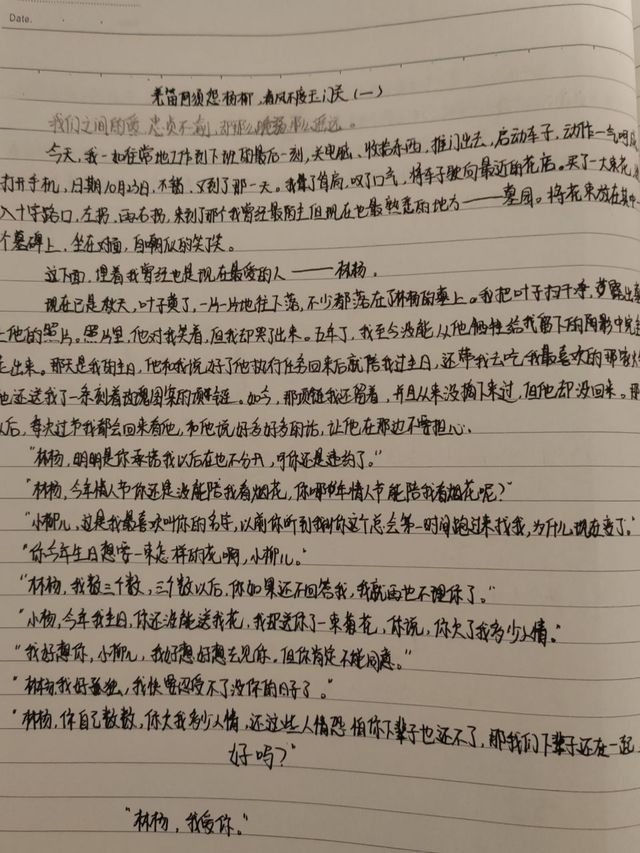 Date.
羌笛何须怨杨柳,春风不度玉门关(一)
我们之间的爱,忠贞不渝,却那么
今天,我一如往常地工作到下班的最后一刻,关电脑、收拾东西,推门出去,启动车子,动作一气呵成
打开手机,日期10月23日,不错,又到了那一天。我耸了耸肩,叹了口气,将车子驶向最近的花店。买了一大束花,
入十字路口,左拐,再右拐,来到了那个我曾经最陌生但现在也最熟悉的地方——墓园。将花束放在其中一
个墓碑上,坐在对面,自嘲似的笑了笑。
这下面,埋着我曾经也是现在最爱的人——林杨。
现在已是秋天,叶子黄了,一片一片地往下落,不少都落在了林杨的墓上。我把叶子扫干净,露出墓
上他的照片。照片里,他对我笑着,但我却哭了出来。五年了,我至今没能从他牺牲给我留下的阴影中完全
走出来。那天是我的生日,他和我说好了他执行任务回来后就陪我过生日,还带我去吃我最喜欢的那家
他还送我了一条刻着玫瑰图案的项链。如今,那项链我还留着,并且从来没摘下来过,但他却没回来。那
以后,每次过节我都会回来看他,和他说好多好多的话,让他在那边不要担心。
“林杨,明明是你承诺我以后在也不分开,可你还是违约了。”
“林杨,今年情人节你还是没能陪我看烟花,你哪年情人节能陪我看烟花呢?”
“小柳儿,这是我最喜欢叫你的名字,以前你听到我叫你这个总会第一时间跑过来找我,为什么现在变了。”
“你今年生日想要一束怎样的花啊,小柳儿。”
“林杨,我数三个数,三个数以后,你如果还不回答我,我就再也不理你了。”
“小杨,今年我生日,你还没能送我花,我却送你了一束菊花,你说,你欠了我多少人情。”
“我好想你,小柳儿,我好想好想去见你,但你肯定不能同意。”
“林杨,我好孤独,我快要忍受不了没你的日子了。”
“林杨,你自己数数,你欠我多少人情,还这些人情恐怕你下辈子也还不了,那我们下辈子还在一起,
好吗?”
“林杨,我爱你。”